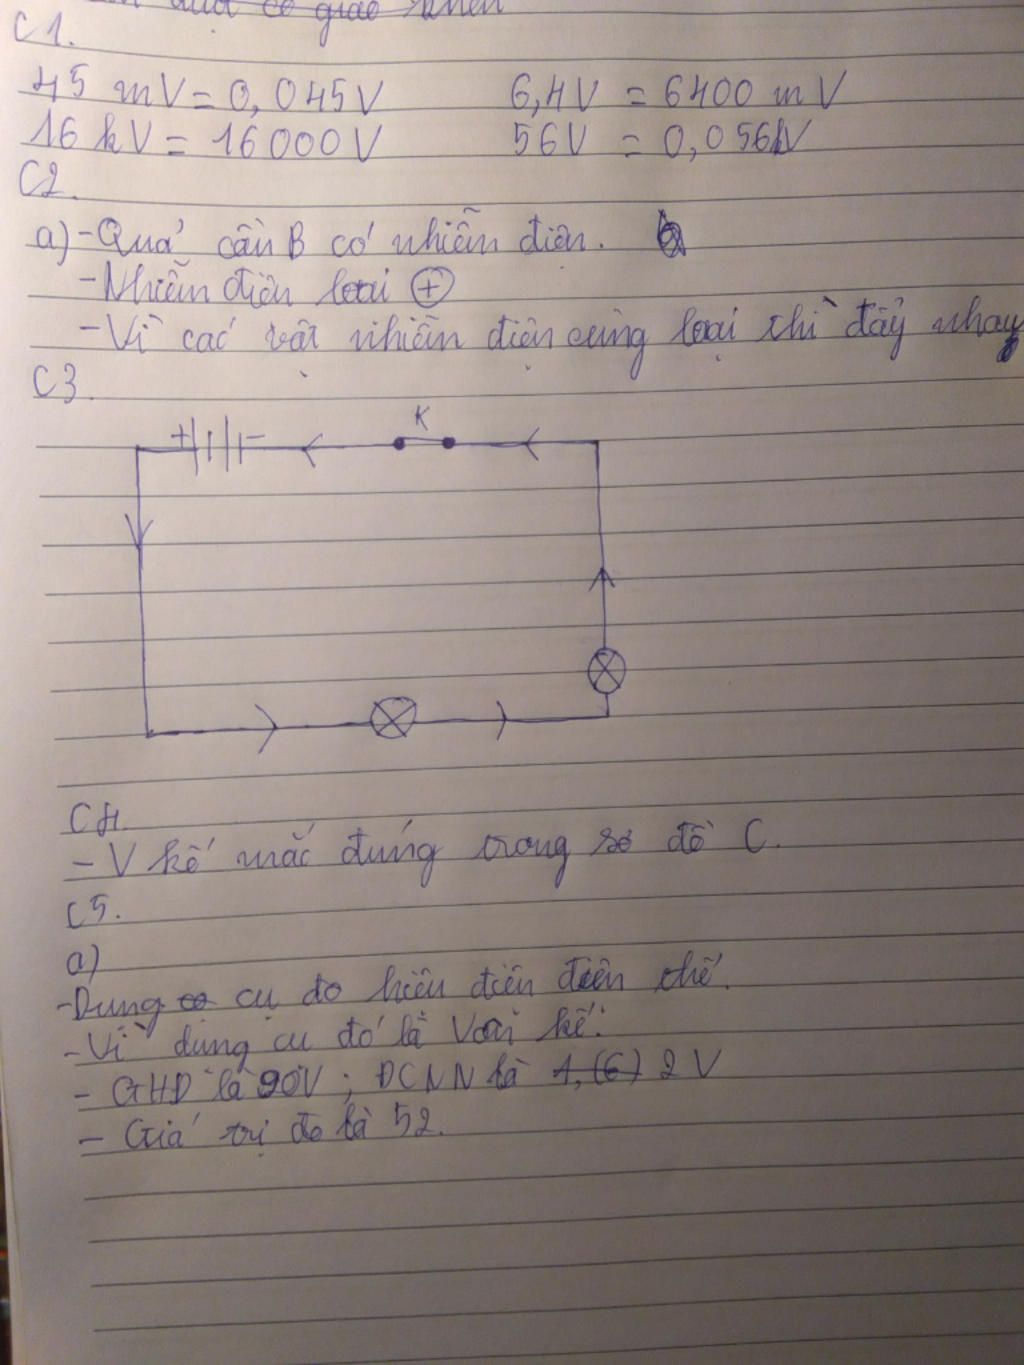 C1.
45 mV = 0,045V 6,4V = 6400 mV
16 kV = 16000V 56V = 0,056kV
C2.
a) - Quả cầu B có nhiễm điện.
- Nhiễm điện loại +
- Vì các vật nhiễm điện cùng loại thì đẩy nhau
C3.
+ - K
C4.
- V kế mắc đúng trong sơ đồ C.
C5.
a)
- Dụng cụ đo hiệu điện điện thế.
- Vì dụng cụ đó là Vôn kế.
- GHĐ là 90V ; ĐCNN là 2V
- Giá trị đo là 52.